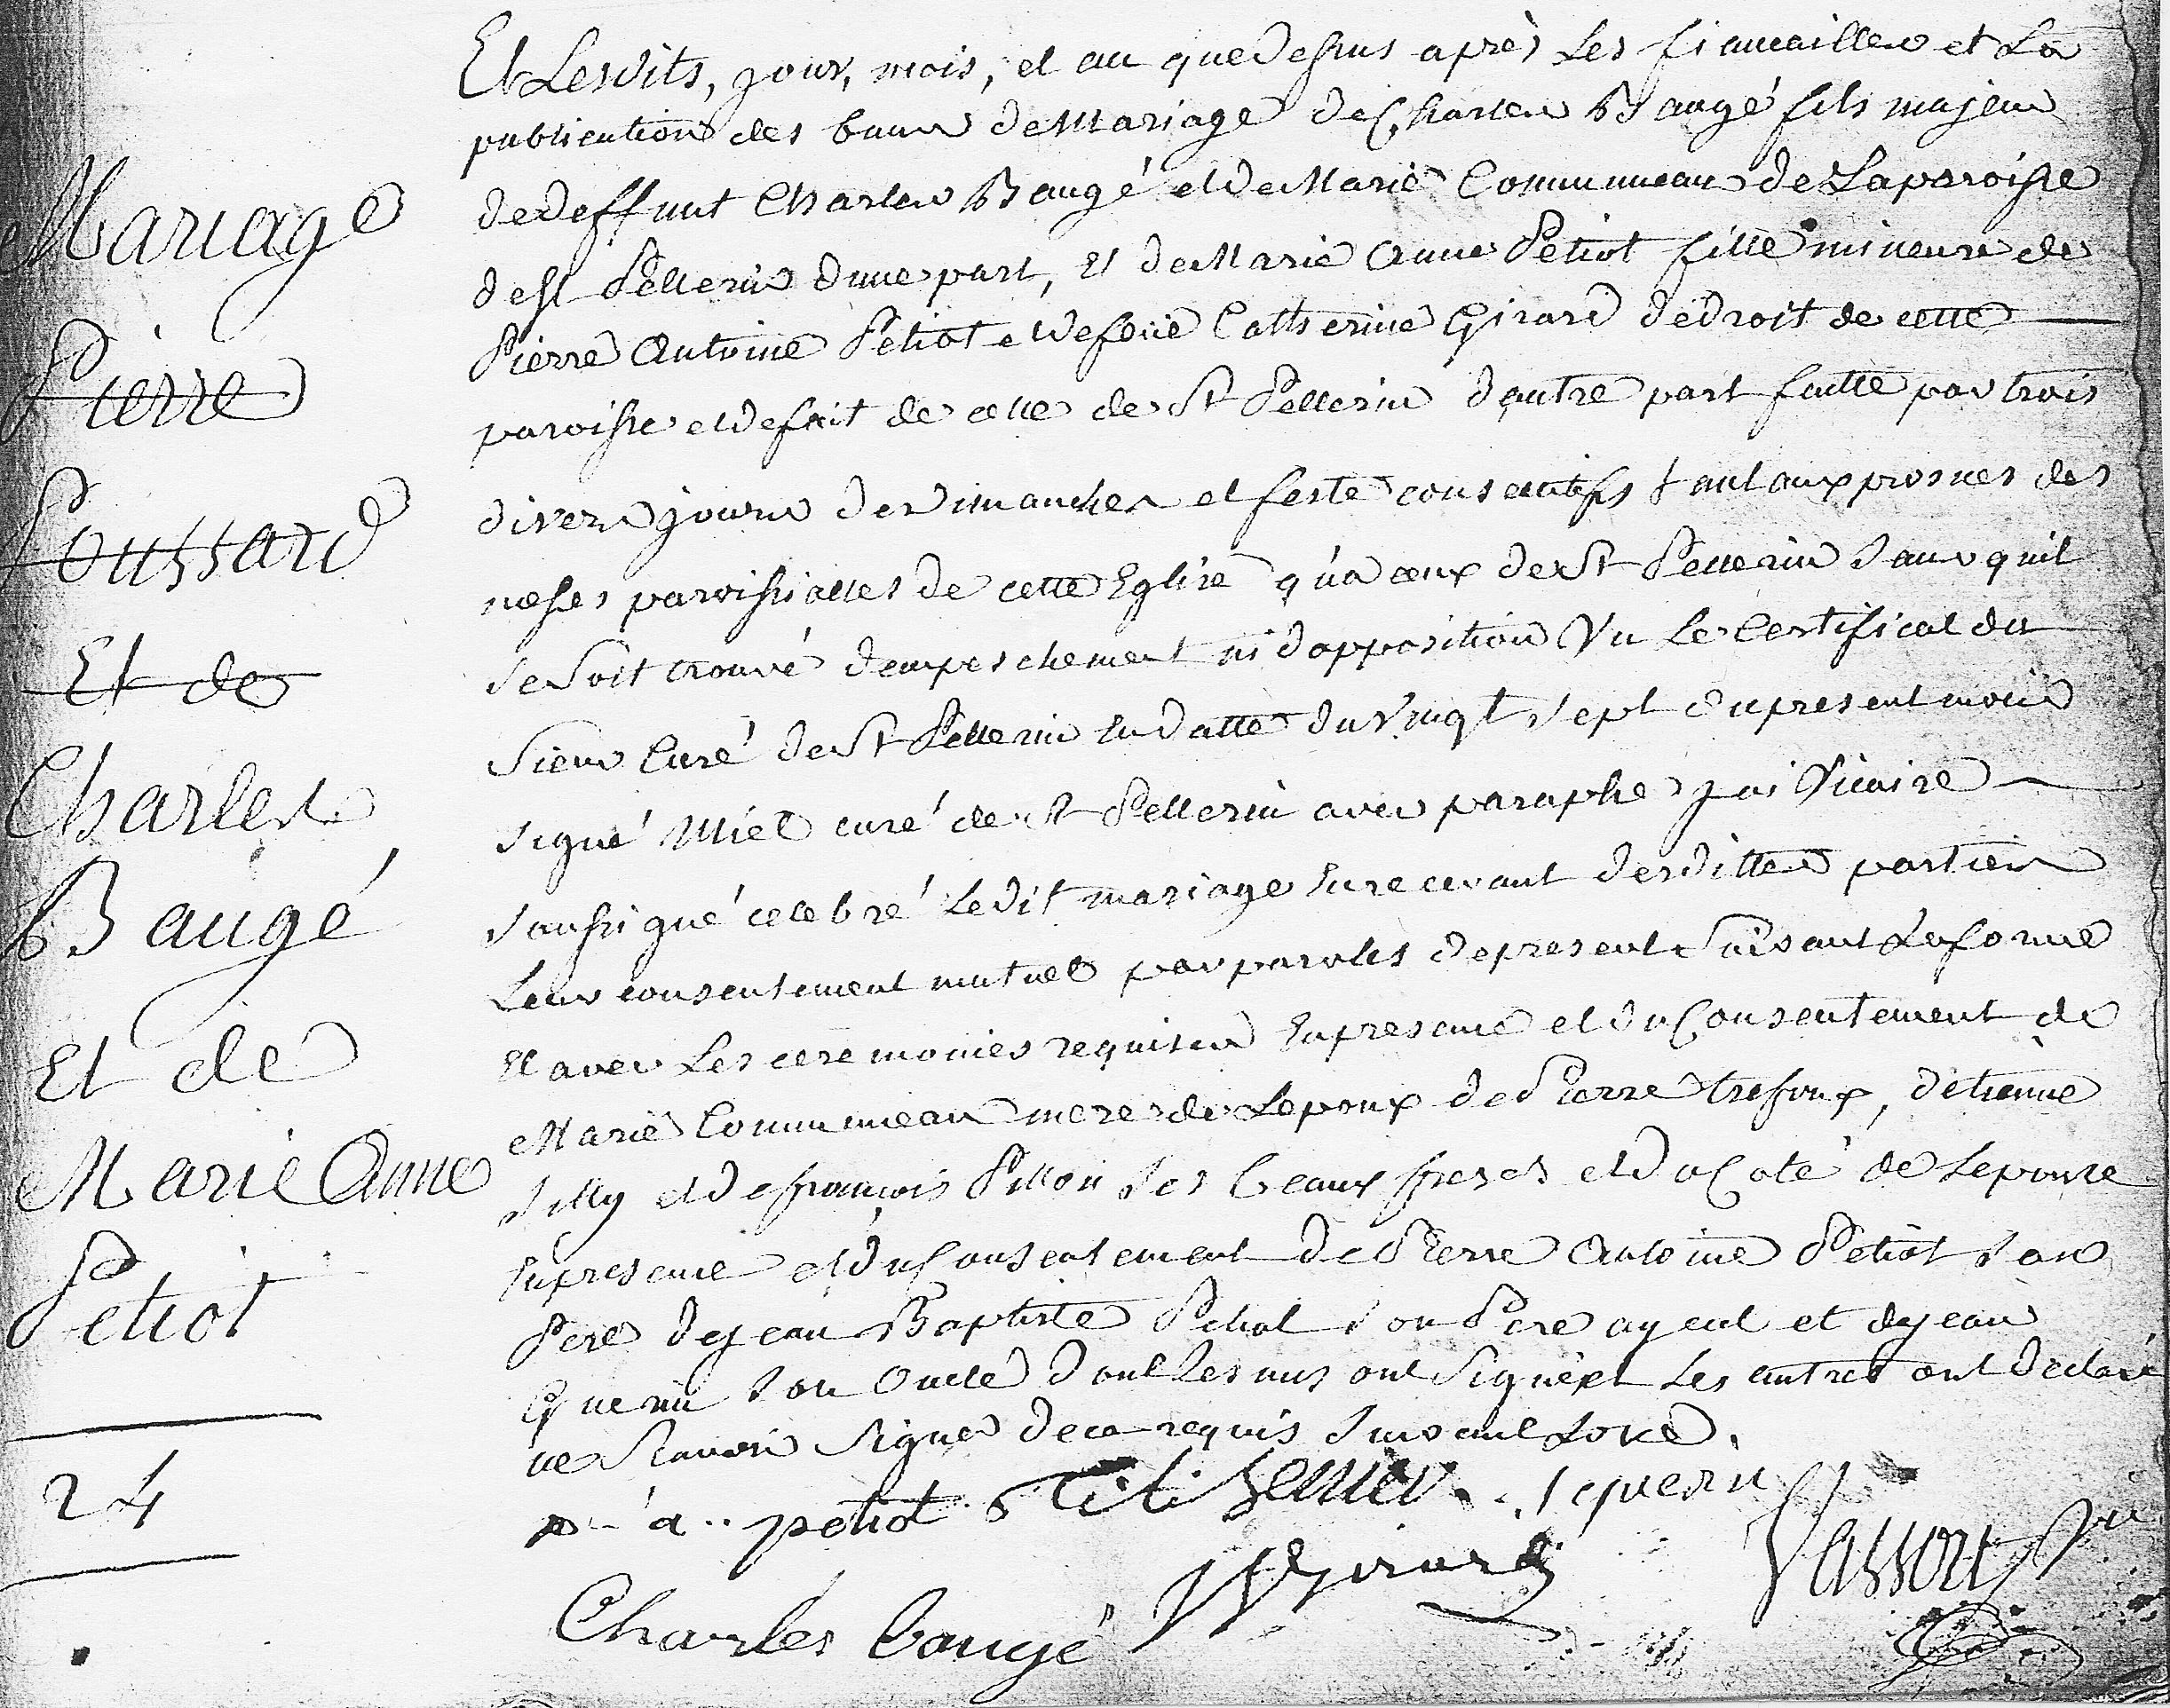 Mariage
Pierre
Poussard
Et de
Charles
Baugé
Et de
Marie Anne
Petiot
24
Et Lesdits, jour, mois, et an que dessus après Les fiancailles et La
publication des bans de Mariage de Charles Baugé fils majeur
de deffunt Charles Baugé et de Marie Communeau de La paroisse
de St Pellerin dune part, Et de Marie Anne Petiot fille mineure de
Pierre Antoine Petiot et de feüe Catherine Girard de droit de cette
paroisse et de fait de celle de St Pellerin dautre part faitte par trois
divers jours de dimanches et feste consecutifs tant aux prosnes des
messes paroissialles de cette Eglise qu'a ceux de St Pellerin sans quil
se soit trouvé dempeschement ni dopposition Vu Le Certificat du
Sieur Curé de St Pellerin En datte du Vingt sept du present mois
signé Miel curé de St Pellerin avec paraphe jai Vicaire
soussigné celebré Ledit mariage En recevant desdittes parties
Leur consentement mutuel par paroles de present Suivant La forme
Et avec Les ceremonies requises En presence et du Consentement de
Marie Communeau mere de Lepoux de Pierre , detienne
silly et de françois Pillon ses beaux freres et du Coté de Lepouse
En presence et du Consentement de Pierre Antoine Petiot son
Pere de jean Baptiste Petiot son Pere ayeul et de jean
Guerin son Oncle dont Les uns ont Signé et Les autres ont declaré
ne Scavoir Signer de ce requis Suivant Lord.
p a petiot J guerin
Charles baugé Girard Vassort